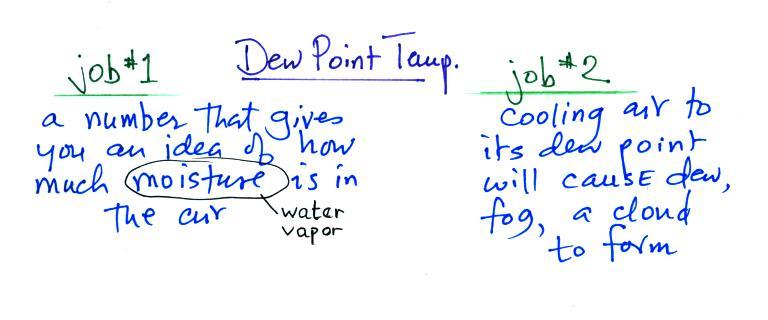 Dew Point Temp.
job #1
a number that gives
you an idea of how
much moisture is in
the air
water
vapor
job #2
cooling air to
its dew point
will cause dew,
fog, a cloud
to form